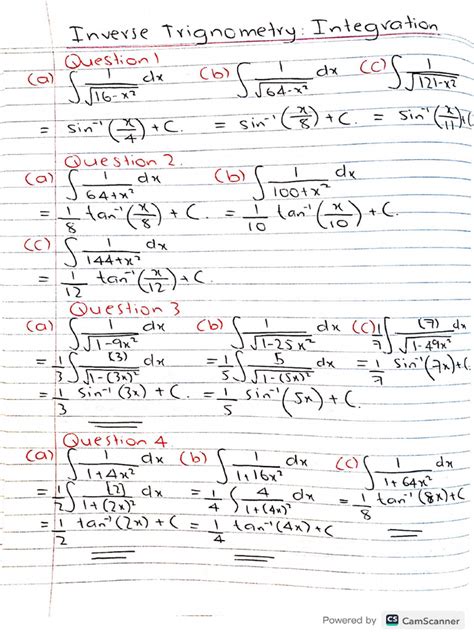 Inverse Trignometry: Integration
Question 1
(a) ∫ 1/√(16-x²) dx (b) ∫ 1/√(64-x²) dx (c) ∫ 1/√(121-x²)
= sin⁻¹(x/4) + C. = sin⁻¹(x/8) + C. = sin⁻¹(x/11)+C
Question 2.
(a) ∫ 1/(64+x²) dx (b) ∫ 1/(100+x²) dx
= 1/8 tan⁻¹(x/8) + C. = 1/10 tan⁻¹(x/10) + C.
(c) ∫ 1/(144+x²) dx
= 1/12 tan⁻¹(x/12) + C.
Question 3
(a) ∫ 1/√(1-9x²) dx (b) ∫ 1/√(1-25x²) dx (c) 1/7 ∫ (7) dx/√(1-49x²)
= 1/3 ∫ (3)/√(1-(3x)²) dx = 1/5 ∫ 5/√(1-(5x)²) dx = 1/7 sin⁻¹(7x)+C
= 1/3 sin⁻¹(3x) + C. = 1/5 sin⁻¹(5x) + C.
Question 4
(a) ∫ 1/(1+4x²) dx (b) ∫ 1/(1+16x²) dx (c) ∫ 1/(1+64x²) dx
= 1/2 ∫ (2)/(1+(2x)²) dx = 1/4 ∫ 4/(1+(4x)²) dx = 1/8 tan⁻¹(8x)+C
= 1/2 tan⁻¹(2x) + C = 1/4 tan⁻¹(4x)+C
Powered by CS CamScanner